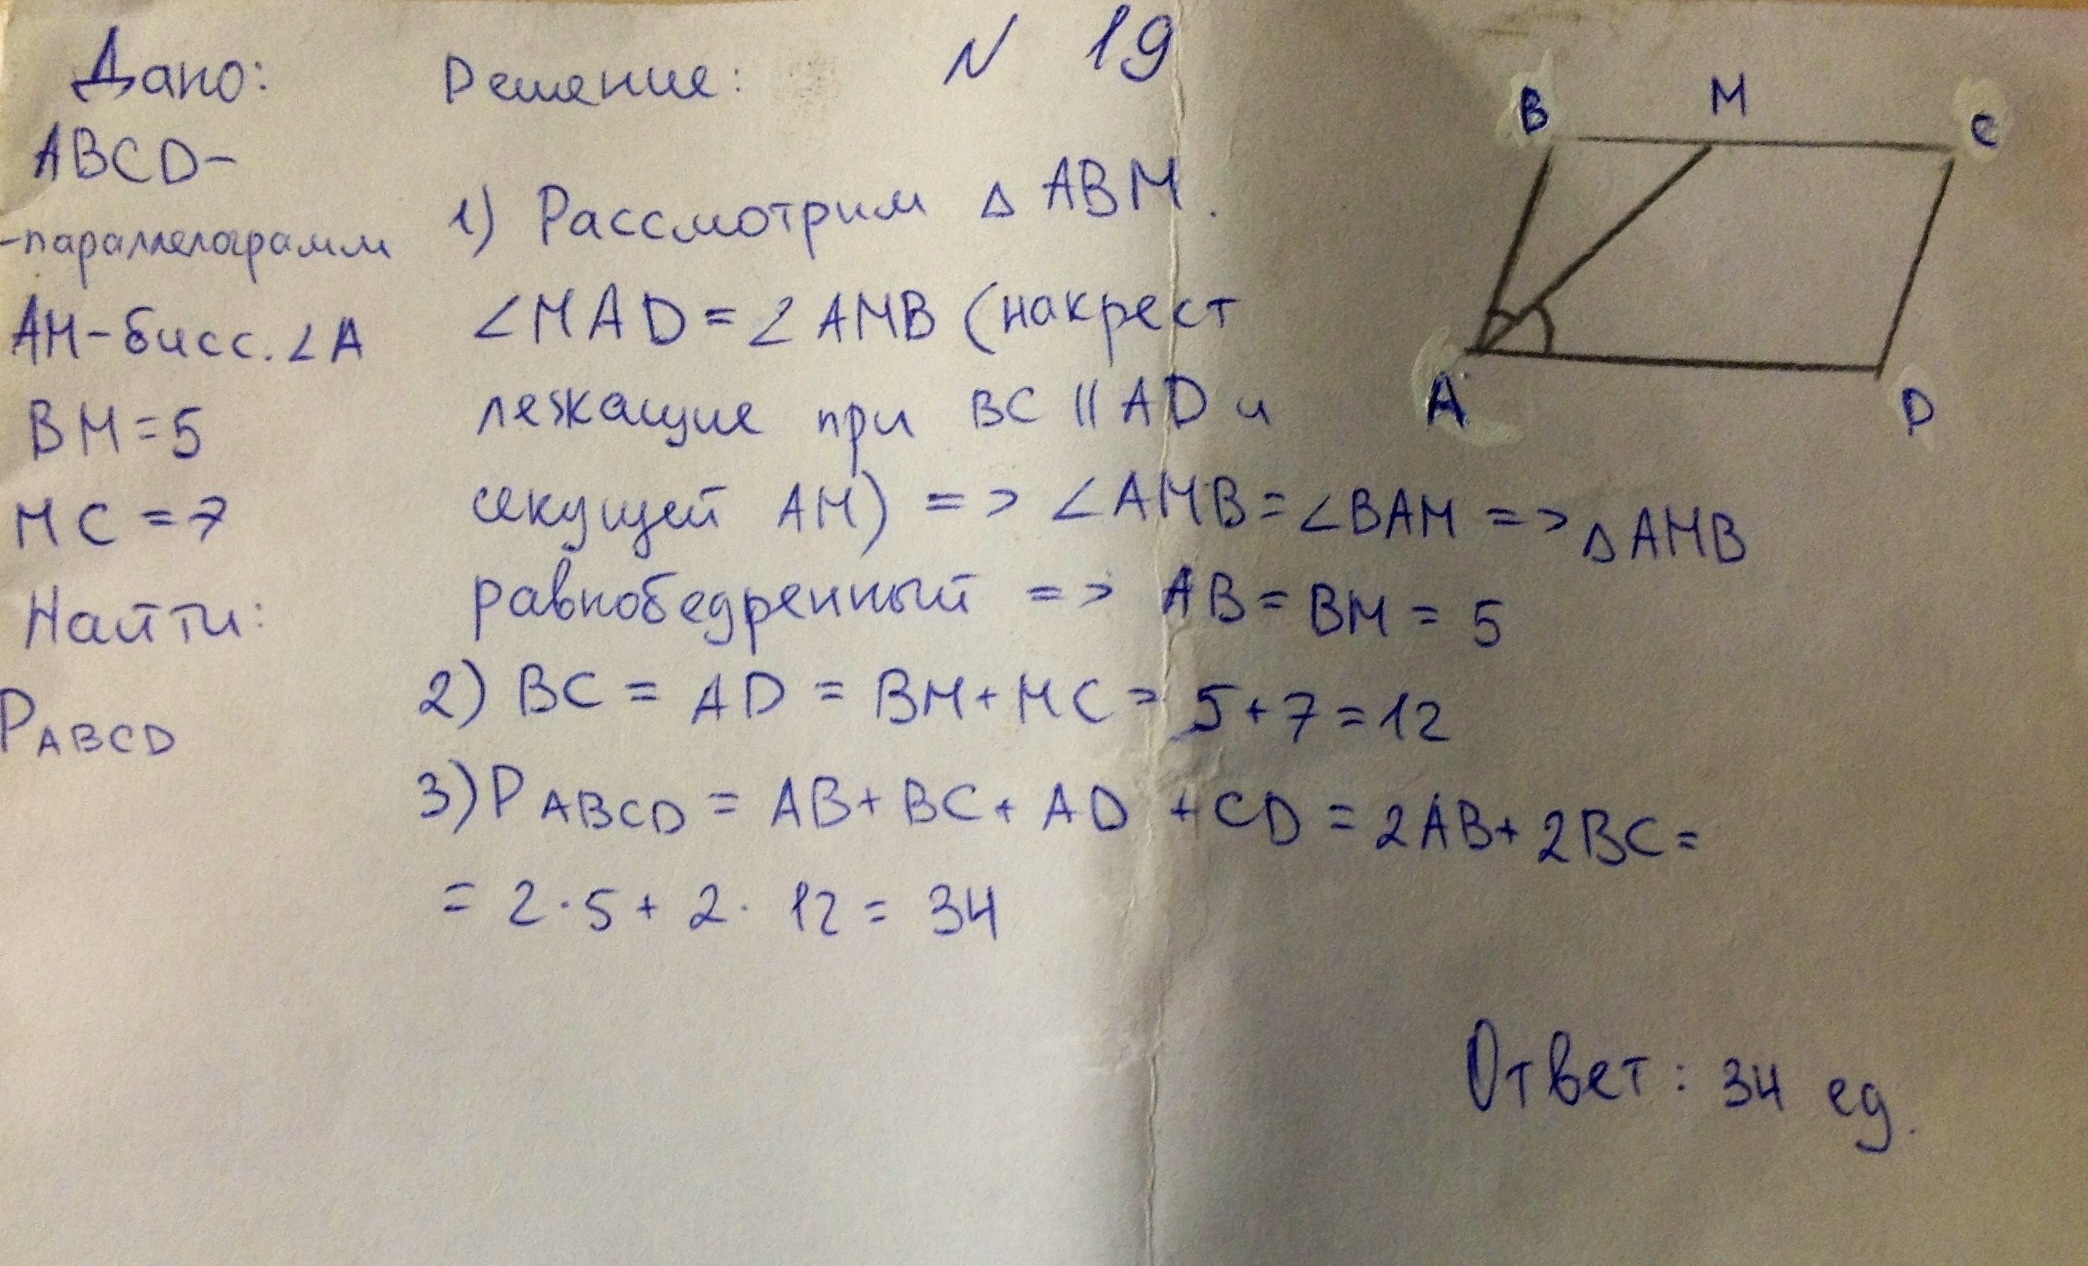 N 19
Дано:
ABCD-
-параллелограмм
AM-бисс. ∠A
BM=5
MC=7
Найти:
P ABCD
Решение:
1) Рассмотрим △ ABM.
∠MAD=∠AMB (накрест
лежащие при BC || AD и
секущей AM) => ∠AMB=∠BAM => △AMB
равнобедренный => AB=BM=5
2) BC = AD = BM+MC = 5+7=12
3) P ABCD = AB+BC+AD+CD=2AB+2BC=
= 2·5+2·12=34
Ответ: 34 ед.
B M C
A D